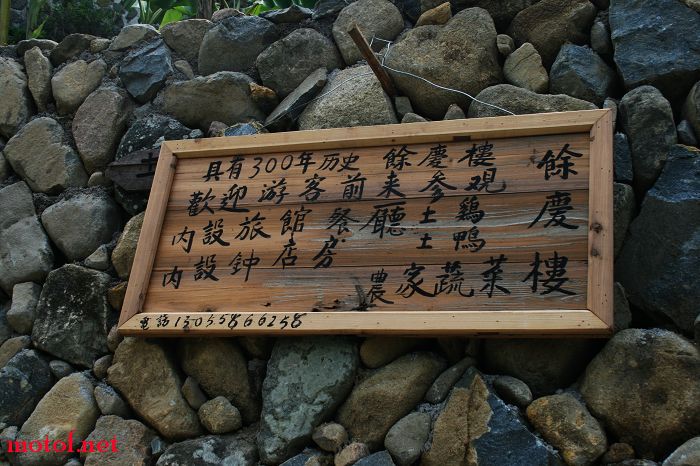 餘慶樓
具有300年历史 餘慶樓
歡迎游客前来參观
内設旅館餐廳土鷄
内設鈡店房 土鴨
農家蔬菜
電話13055866258
motof.net